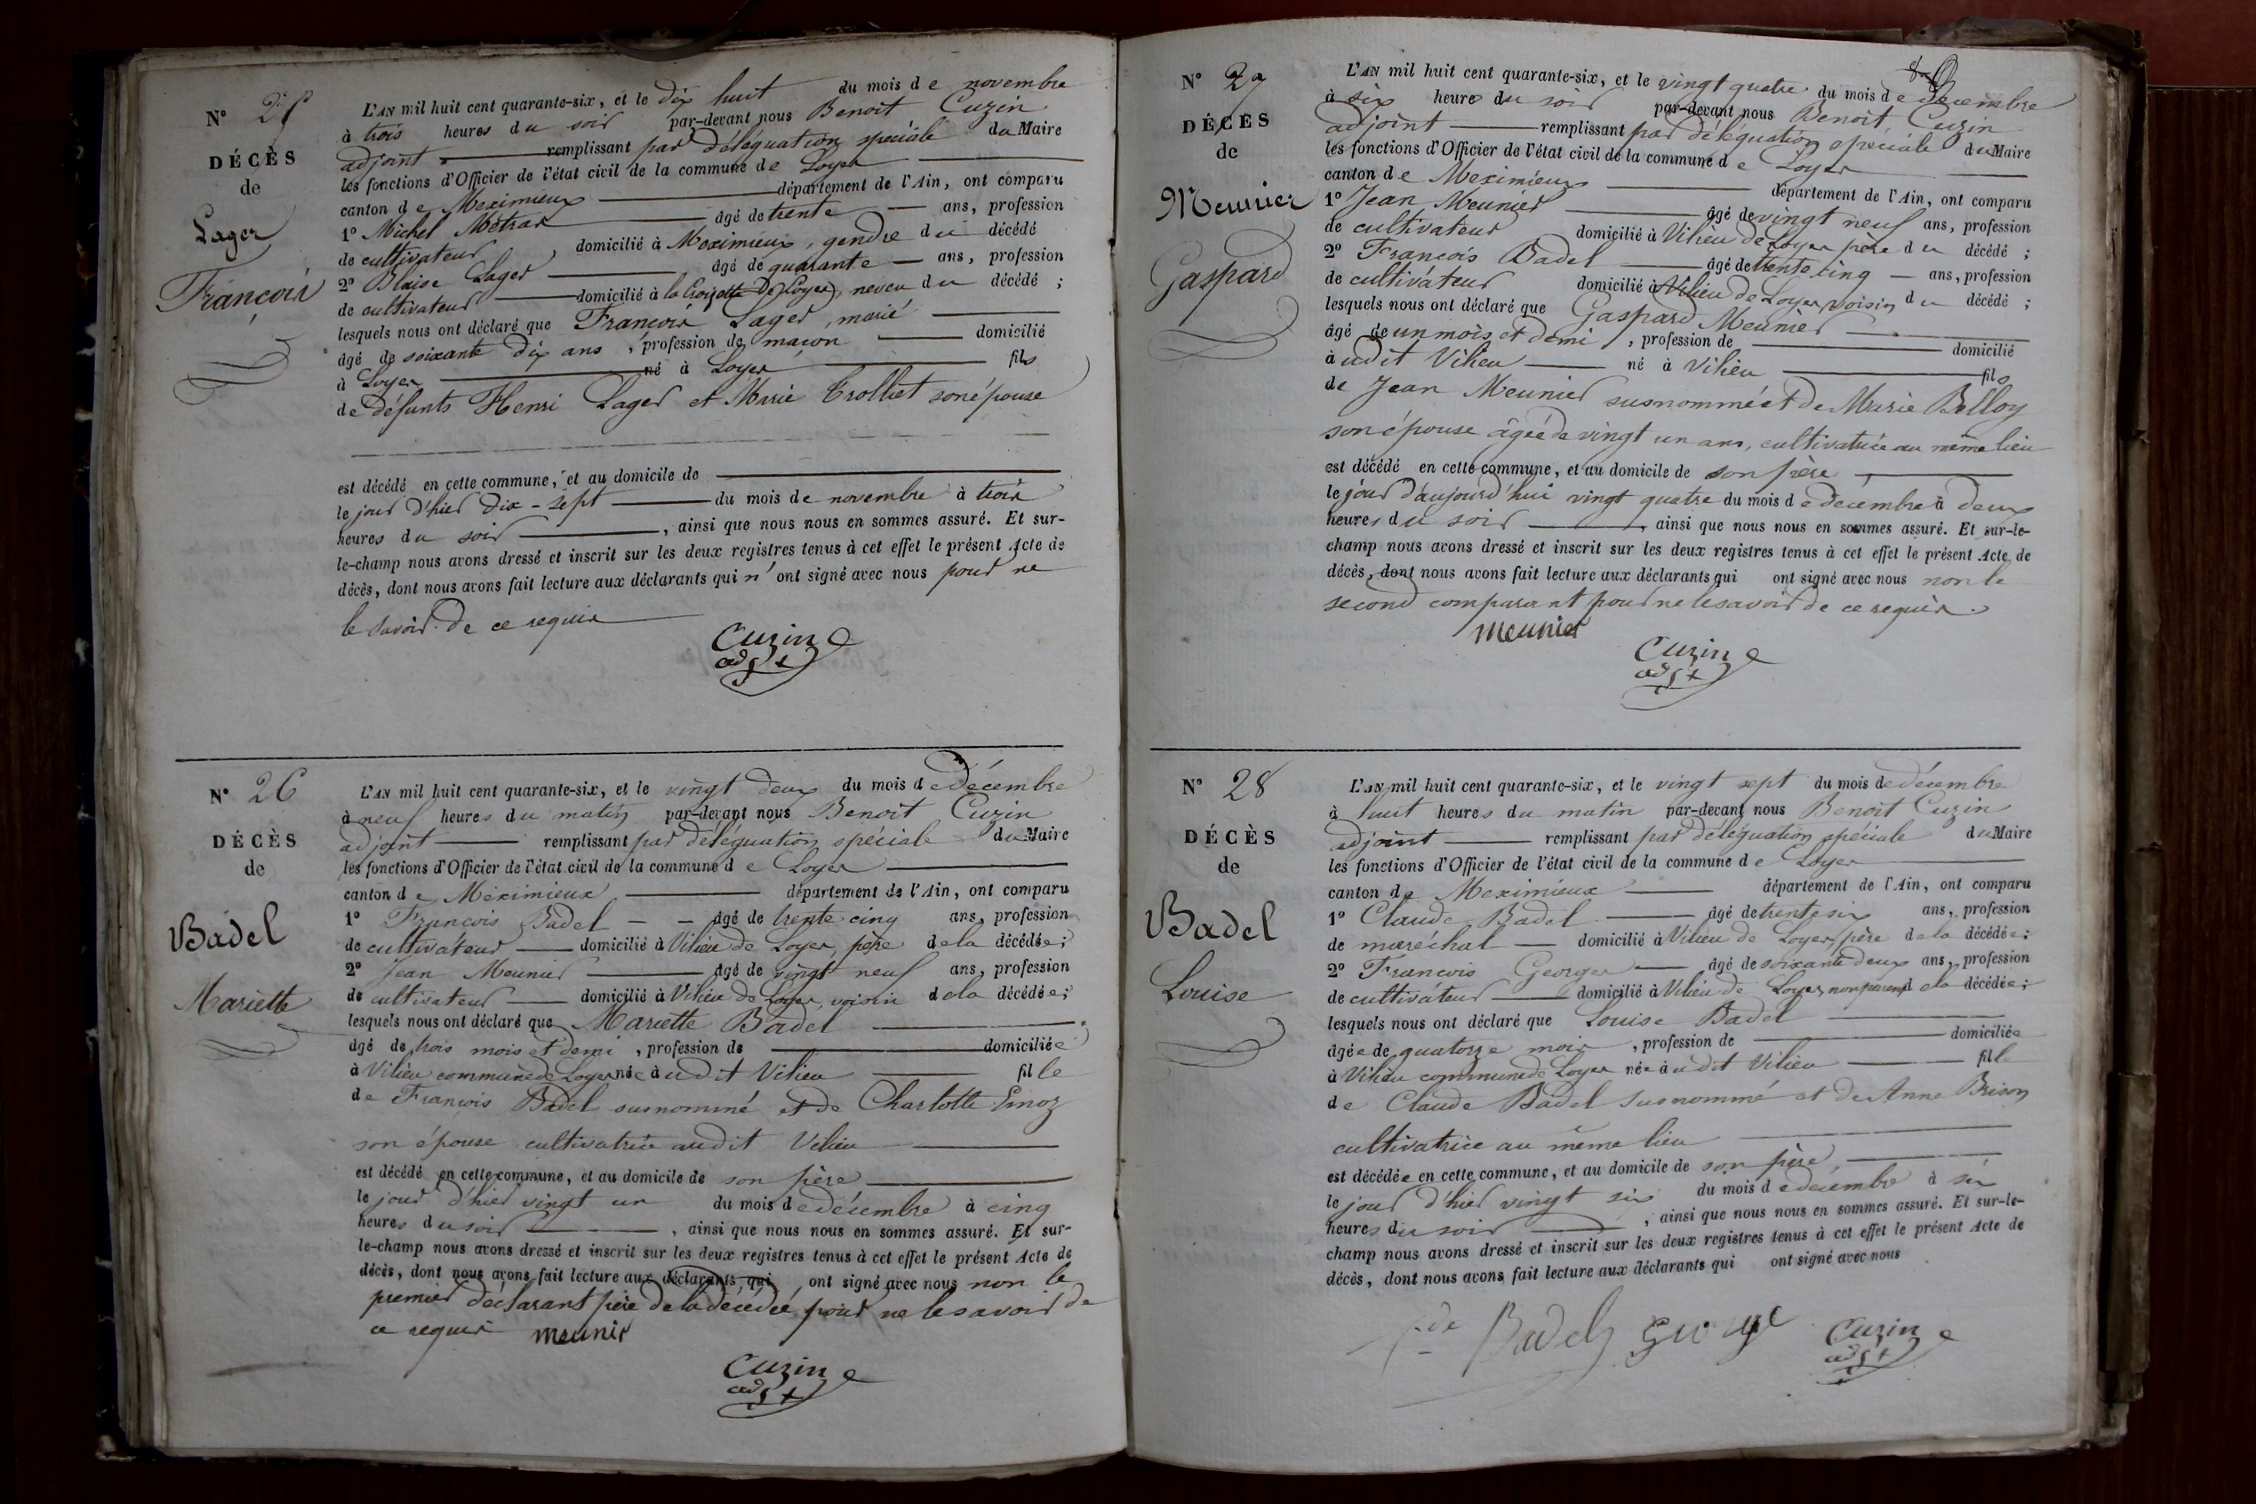 N° 25
DÉCÈS
de
Lager
François
L'AN mil huit cent quarante-six, et le dix huit du mois de novembre
à trois heures du soir par-devant nous Benoit Cuzin
adjoint remplissant par délégation spéciale du Maire
les fonctions d'Officier de l'état civil de la commune de Loyer
canton de Meximieux département de l'Ain, ont comparu
1° Michel Métras âgé de trente ans, profession
de cultivateur domicilié à Meximieux, gendre du décédé
2° Blaise Lager âgé de quarante ans, profession
de cultivateur domicilié à la Croizette De Loyer, neveu du décédé ;
lesquels nous ont déclaré que François Lager, marié
âgé de soixante dix ans, profession de maçon domicilié
à Loyer né à Loyer fils
de défunts Henri Lager et Marie Trolliet son épouse
est décédé en cette commune, et au domicile de
le jour d'hier dix-sept du mois de novembre à trois
heures du soir, ainsi que nous nous en sommes assuré. Et sur-
le-champ nous avons dressé et inscrit sur les deux registres tenus à cet effet le présent Acte de
décès, dont nous avons fait lecture aux déclarants qui n'ont signé avec nous pour ne
le savoir de ce requis
Cuzin
adjt
N° 26
DÉCÈS
de
Badel
Mariette
L'AN mil huit cent quarante-six, et le vingt deux du mois de décembre
à neuf heures du matin par-devant nous Benoit Cuzin
adjoint remplissant par délégation spéciale du Maire
les fonctions d'Officier de l'état civil de la commune de Loyer
canton de Méximieux département de l'Ain, ont comparu
1° François Badel âgé de trente cinq ans, profession
de cultivateur domicilié à Vilieu de Loyer, père de la décédée ;
2° Jean Meunier âgé de vingt neuf ans, profession
de cultivateur domicilié à Vilieu de Loyer, voisin de la décédée ;
lesquels nous ont déclaré que Mariette Badel
âgé de trois mois et demi, profession de domiciliée
à Vilieu commune de Loyer née audit Vilieu fille
de François Badel susnommé et de Charlotte Emoz
son épouse cultivatrice audit Vilieu
est décédé en cette commune, et au domicile de son père
le jour d'hier vingt un du mois de décembre à cinq
heures du soir, ainsi que nous nous en sommes assuré. Et sur-
le-champ nous avons dressé et inscrit sur les deux registres tenus à cet effet le présent Acte de
décès, dont nous avons fait lecture aux déclarants qui ont signé avec nous non le
premier déclarant père de la décédée, pour ne le savoir de
ce requis meunir
Cuzin
adjt
N° 27
DÉCÈS
de
Meunier
Gaspard
L'AN mil huit cent quarante-six, et le vingt quatre du mois de décembre
à six heures du soir par-devant nous Benoit Cuzin
adjoint remplissant par délégation spéciale du Maire
les fonctions d'Officier de l'état civil de la commune de Loyer
canton de Meximieux département de l'Ain, ont comparu
1° Jean Meunier âgé de vingt neuf ans, profession
de cultivateur domicilié à Vilieu de Loyer père du décédé ;
2° François Badel âgé de trente cinq ans, profession
de cultivateur domicilié à Vilieu de Loyer, voisin du décédé ;
lesquels nous ont déclaré que Gaspard Meunier
âgé de un mois et demi, profession de domicilié
audit Vilieu né à Vilieu fils
de Jean Meunier susnommé et de Marie Belloy
son épouse âgée de vingt un ans, cultivatrice au même lieu
est décédé en cette commune, et au domicile de son père
le jour d'aujourd'hui vingt quatre du mois de décembre à deux
heures du soir ainsi que nous nous en sommes assuré. Et sur-le-
champ nous avons dressé et inscrit sur les deux registres tenus à cet effet le présent Acte de
décès, dont nous avons fait lecture aux déclarants qui ont signé avec nous non le
second comparant pour ne le savoir de ce requis.
Meunier
Cuzin
adjt
N° 28
DÉCÈS
de
Badel
Louise
L'AN mil huit cent quarante-six, et le vingt sept du mois de décembre
à huit heures du matin par-devant nous Benoit Cuzin
adjoint remplissant par délégation spéciale du Maire
les fonctions d'Officier de l'état civil de la commune de Loyer
canton de Meximieux département de l'Ain, ont comparu
1° Claude Badel âgé de trente six ans, profession
de maréchal domicilié à Vilieu de Loyer, père de la décédée ;
2° François George âgé de soixante deux ans, profession
de cultivateur domicilié à Vilieu de Loyer, non parent de la décédée ;
lesquels nous ont déclaré que Louise Badel
âgée de quatorze mois, profession de domiciliée
à Vilieu commune de Loyer née audit Vilieu fille
de Claude Badel susnommé et de Anne Brison
cultivatrice au même lieu
est décédée en cette commune, et au domicile de son père
le jour d'hier vingt six du mois de décembre à six
heures du soir, ainsi que nous nous en sommes assuré. Et sur-le-
champ nous avons dressé et inscrit sur les deux registres tenus à cet effet le présent Acte de
décès, dont nous avons fait lecture aux déclarants qui ont signé avec nous
Badel George Cuzin
adjt